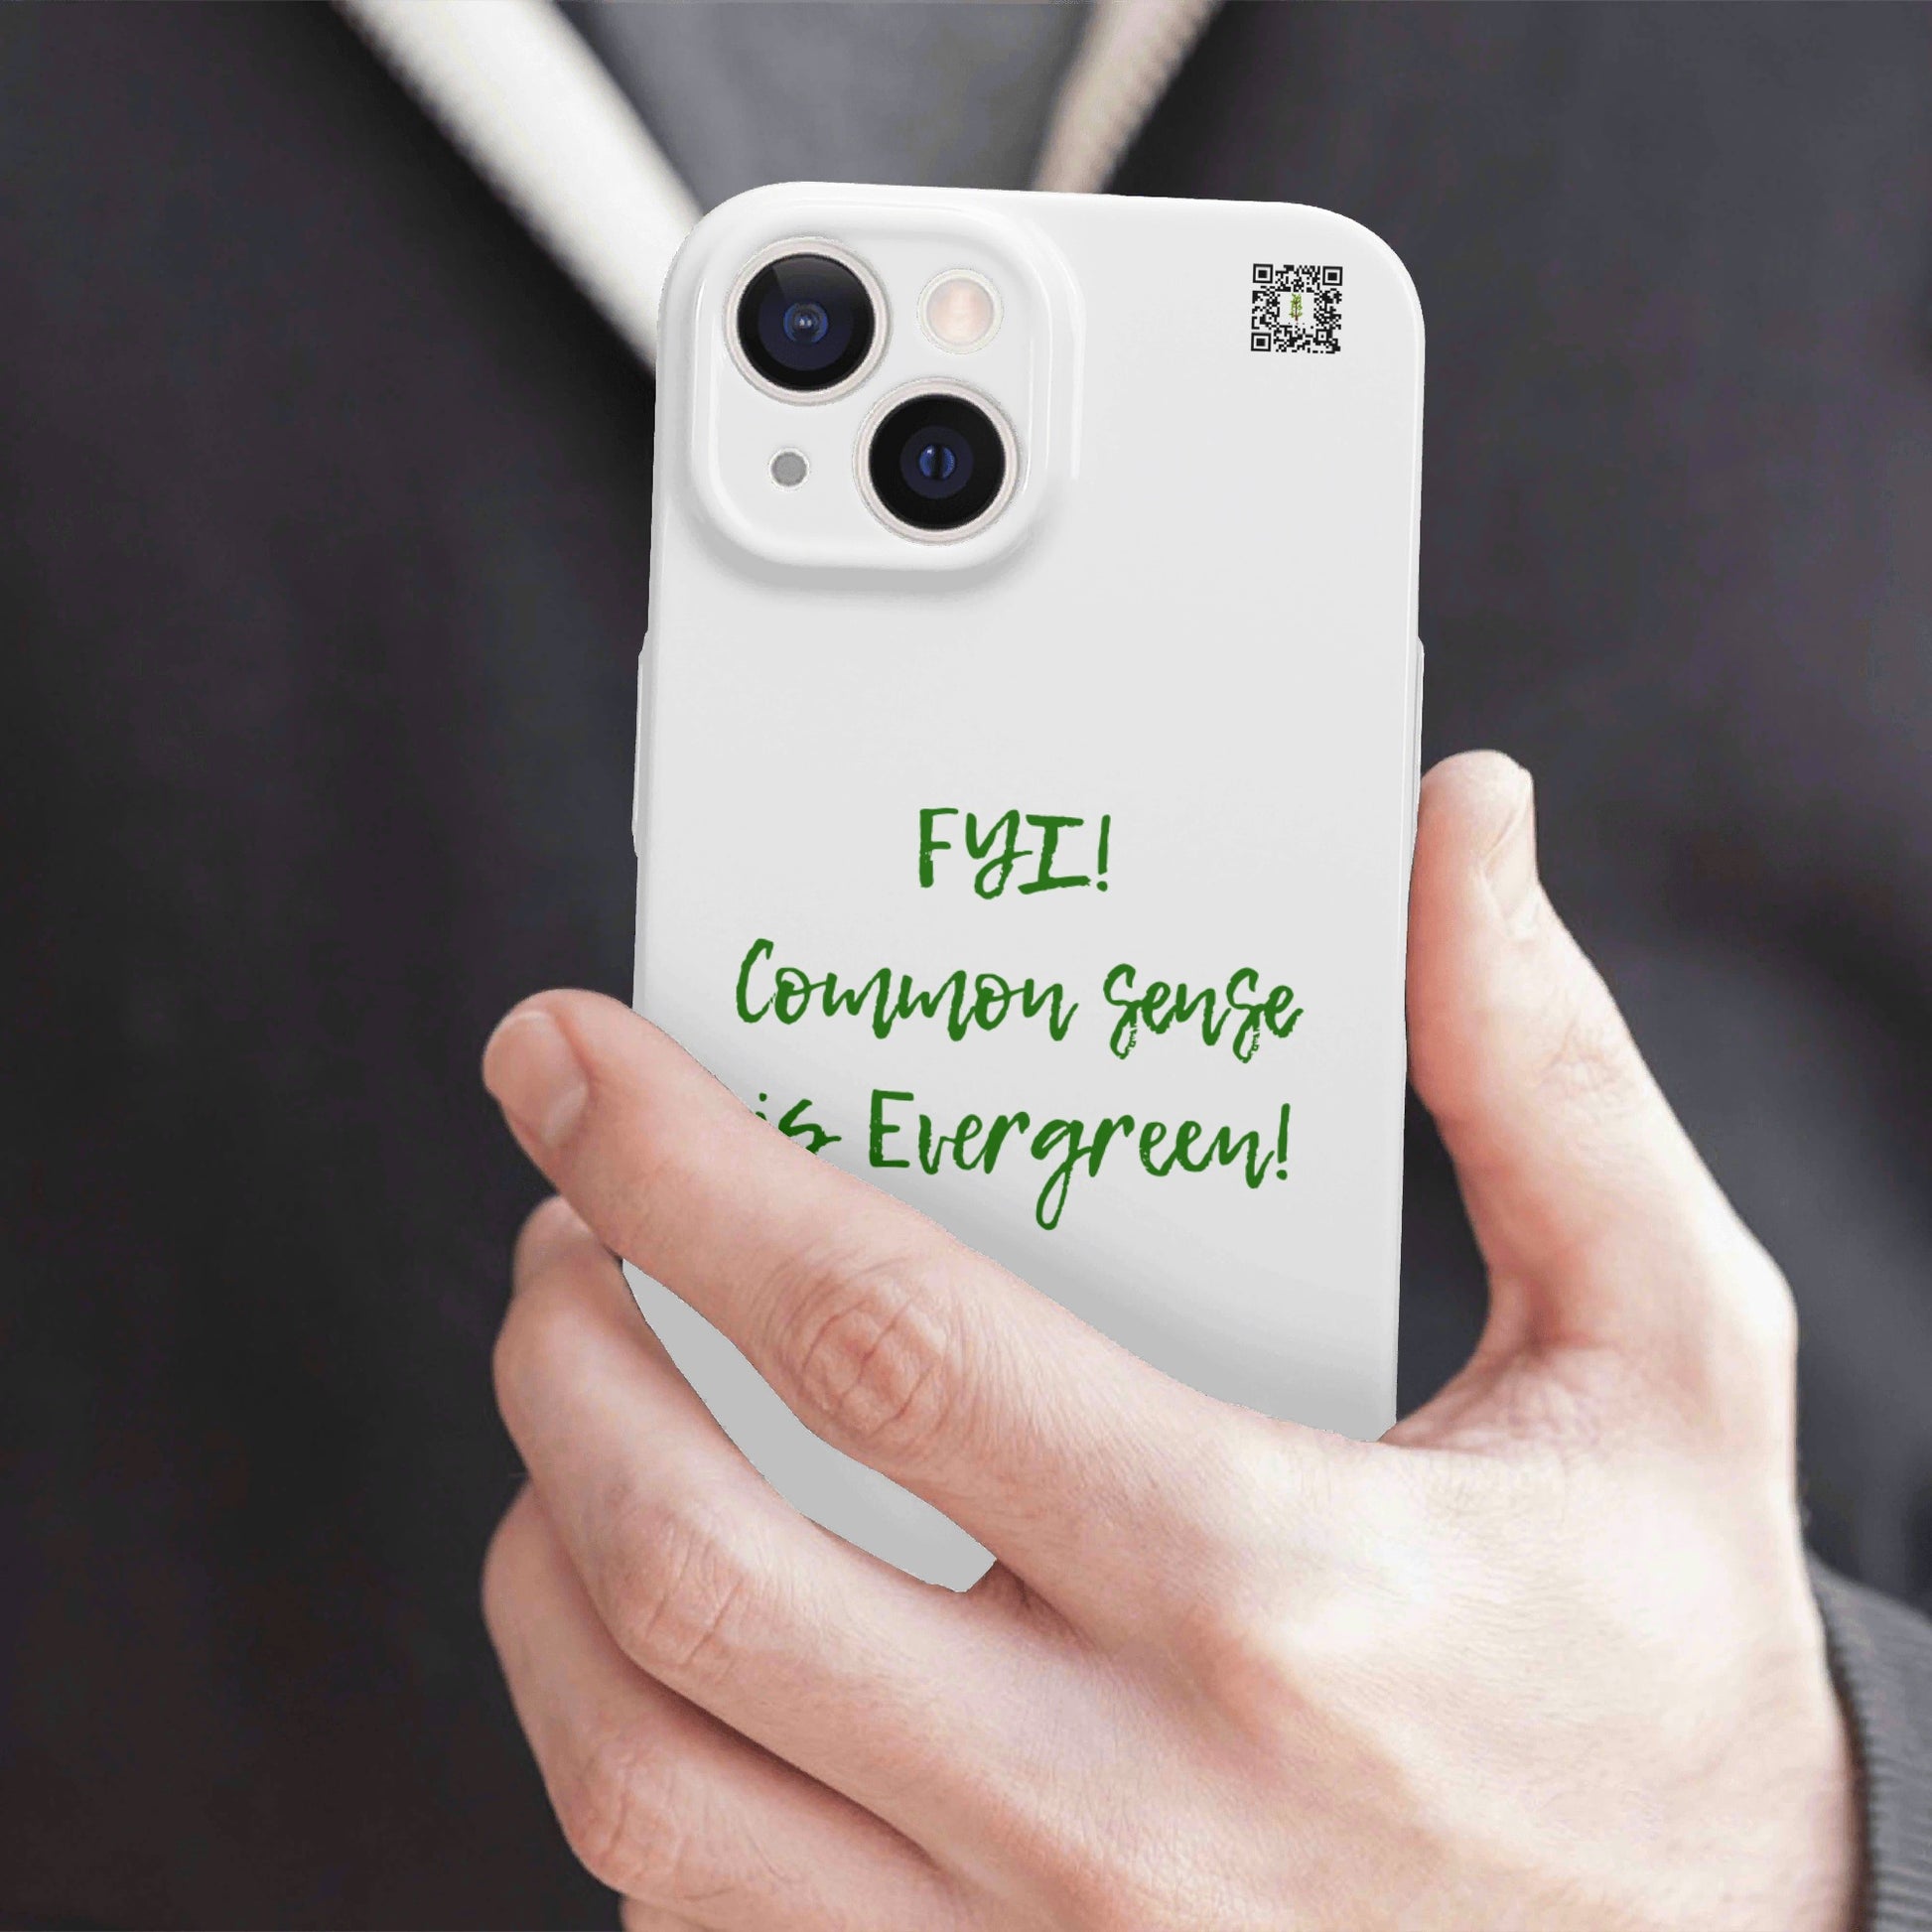 FYI!
Common sense
is Evergreen!